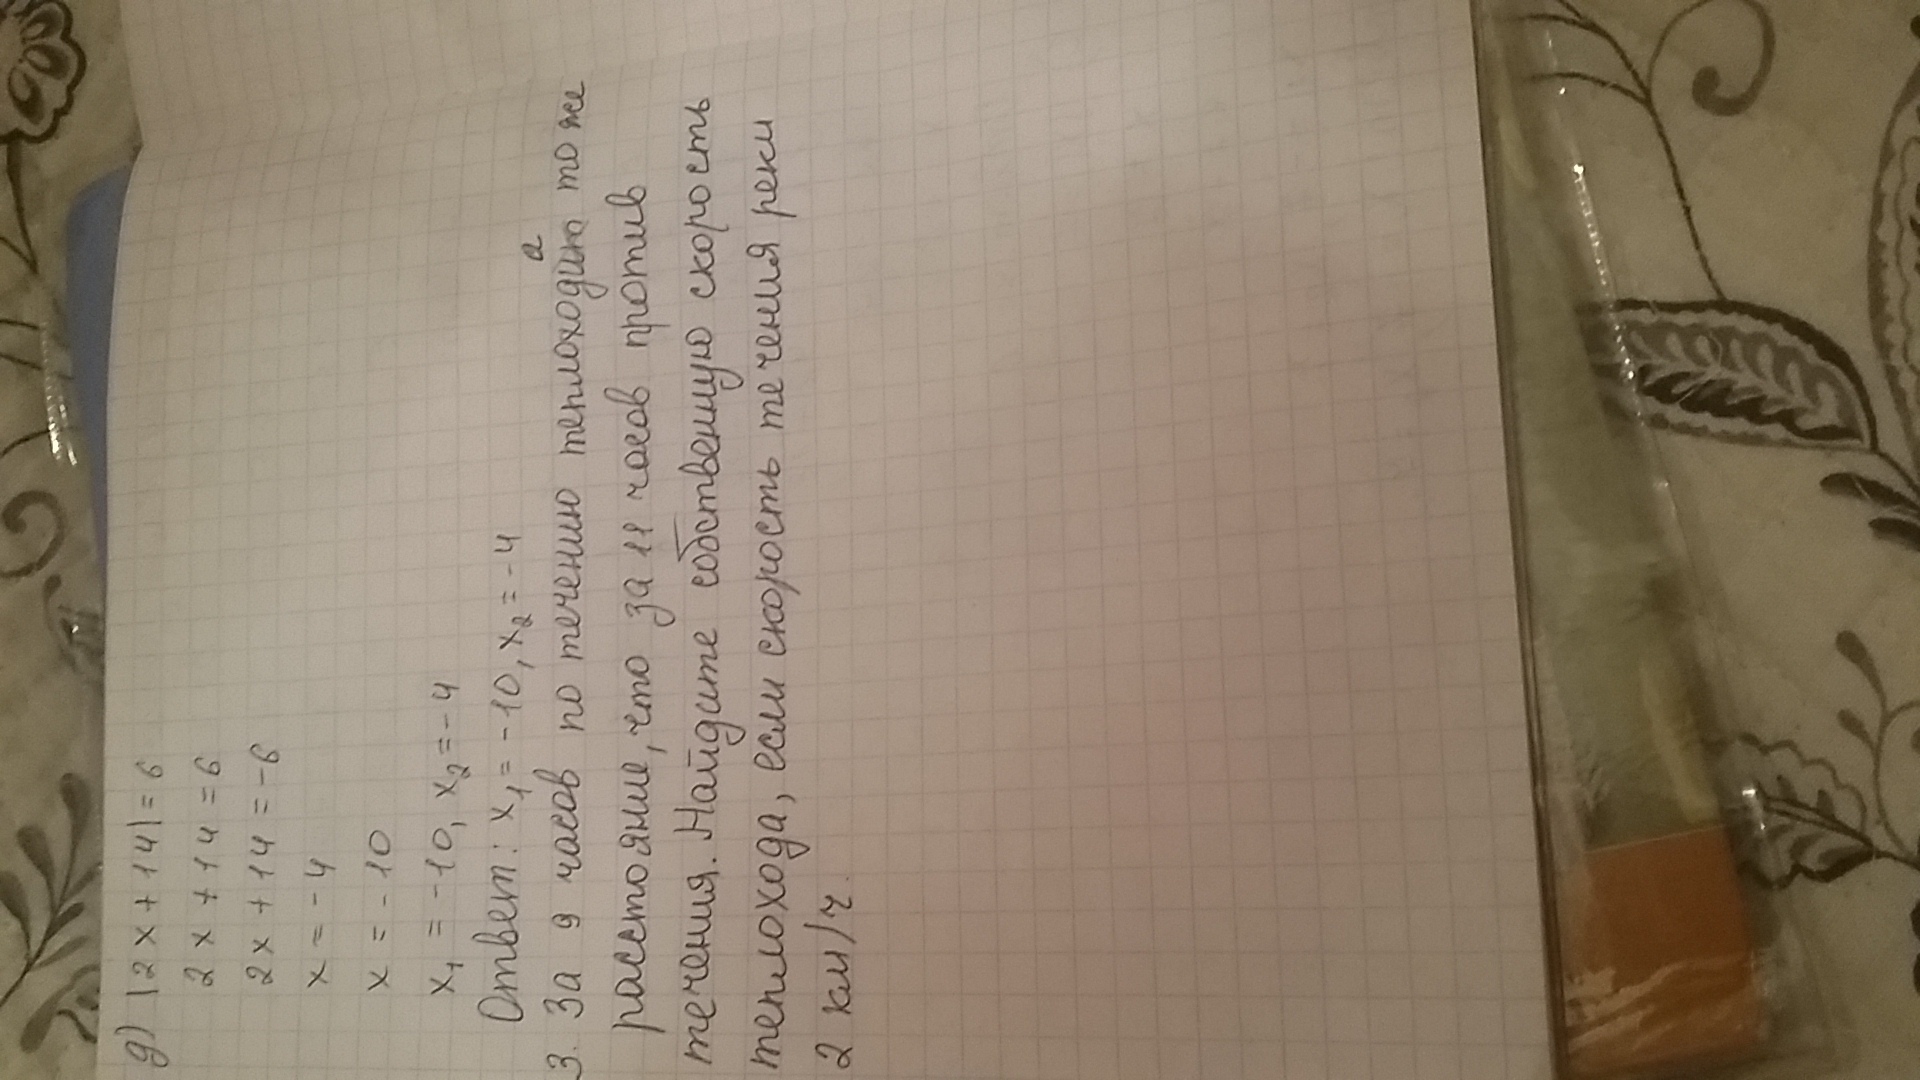 д) |2x + 14| = 6
2x + 14 = 6
2x + 14 = -6
x = -4
x = -10
x₁ = -10, x₂ = -4
Ответ: x₁ = -10, x₂ = -4
3. За 9 часов по течению теплоходию а то же
расстояние, что за 11 часов против
течения. Найдите собственную скорость
теплохода, если скорость течения реки
2 км/ч.